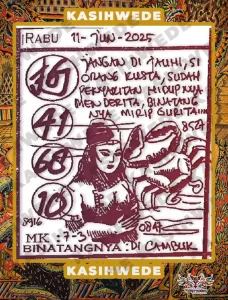 KASIHWEDE
RABU 11-JUN-2025
161
JANGAN DI JAUHI, SI
ORANG KUSTA, SUDAH
PENYAKITAN HIDUP NYA
MENDERITA, BINATANG
NYA MIRIP GURITA
41
8524
68
10
8916
0847
MK : 7-3
BINATANGNYA : DI CAMBUK
KASIHWEDE